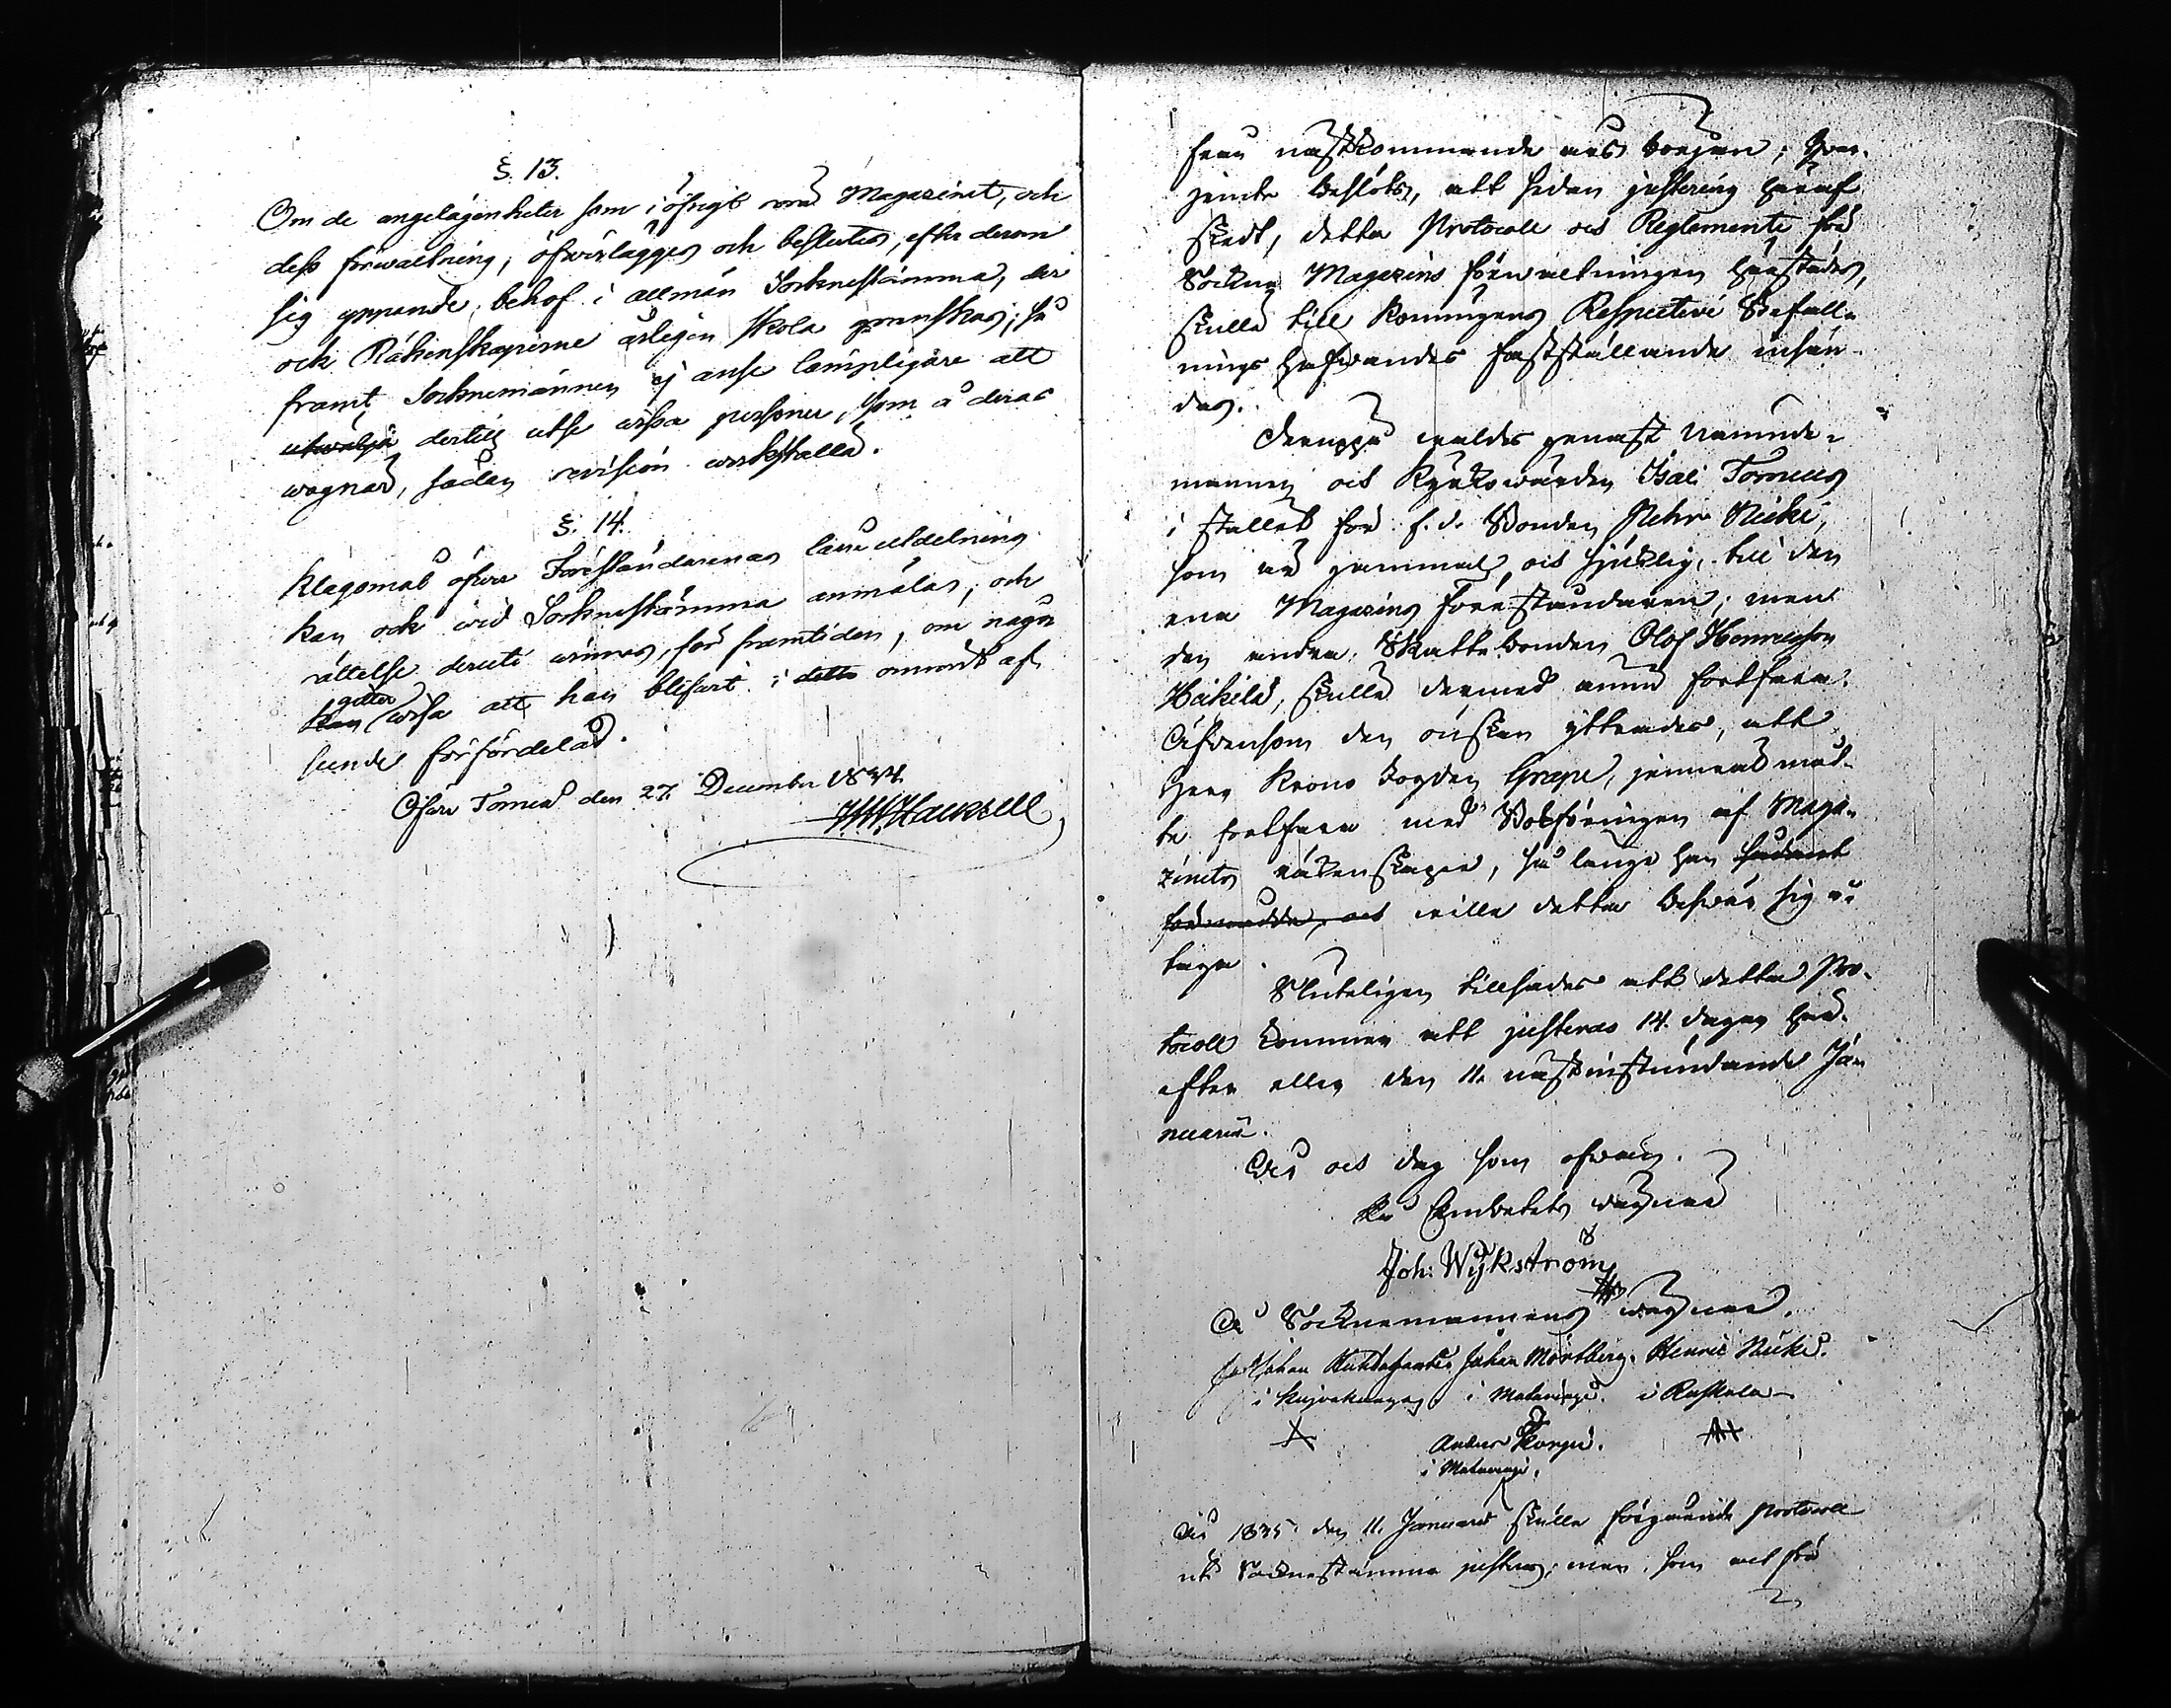 §. 13.
Om de angelägenheter som i öfrigt röra Magazinet, och
dess förwaltning, öfwerlägges och beslutes, efter derom
sig yppande behof i allmän Sockneståmma, der
och Räkenskaperne årligen skola granskas; så
framt Socknemännen ej anse lämpligare att
utwälja dertill utse wissa personer, som å deras
wägnar, sådan revision werkställa.
§. 14.
Klagomål öfwer Föreståndarenas låne utdelning
kan ock wid Sockneståmma anmälas, och
rättelse deruti winnas, för framtiden, om någon
gitter
kan wisa att han blifwit i detta omnämt af
seende förfördelad.
Öfwer Torneå den 27. December 1834.
Hackzell
från nästkommande års början; hwar-
jemte beslöts, att sedan justering häraf
skedt, detta Protocoll och Reglemente för
Sockne Magazins förwaltningen härstädes,
skulle till Konungens Respective Befall-
nings hafwandes fastställande insän-
das.
Deruppå waldes genast Nämnde-
mannen och Kyrkowärden Isac Törmen
i stället för f. d. Bonden Petter Niska,
som är gammal och sjuklig, till den
ena Magazins föreståndaren; men
den andra, Skattebonden Olof Henriksson
skulle dermed ännu fortfara.
Äfwensom den önskan yttrades, att
Herr Krono Fogden Grape, jemwäl måt-
te fortfara med Bokföringen af Maga-
zinets räkenskaper, så länge han
och wille detta beswär sig å-
taga.
Sluteligen tillsades att detta Pro-
tocoll kommer att justeras 14. dagar här-
efter eller den 11. nästinstundande Ja-
nuarii.
År och dag som ofwan.
På Embetets wägnar
Joh: Wykström
På Socknemännens wägnar.
Johan Johan Mörtberg. Henric Niska.
i i Matarengi. i Ruskola
Anders Korpi.
i Matarengi.
År 1835 den 11. Januarii skulle föregående Protocoll
uti Sockneståmma justeras; men, som det för